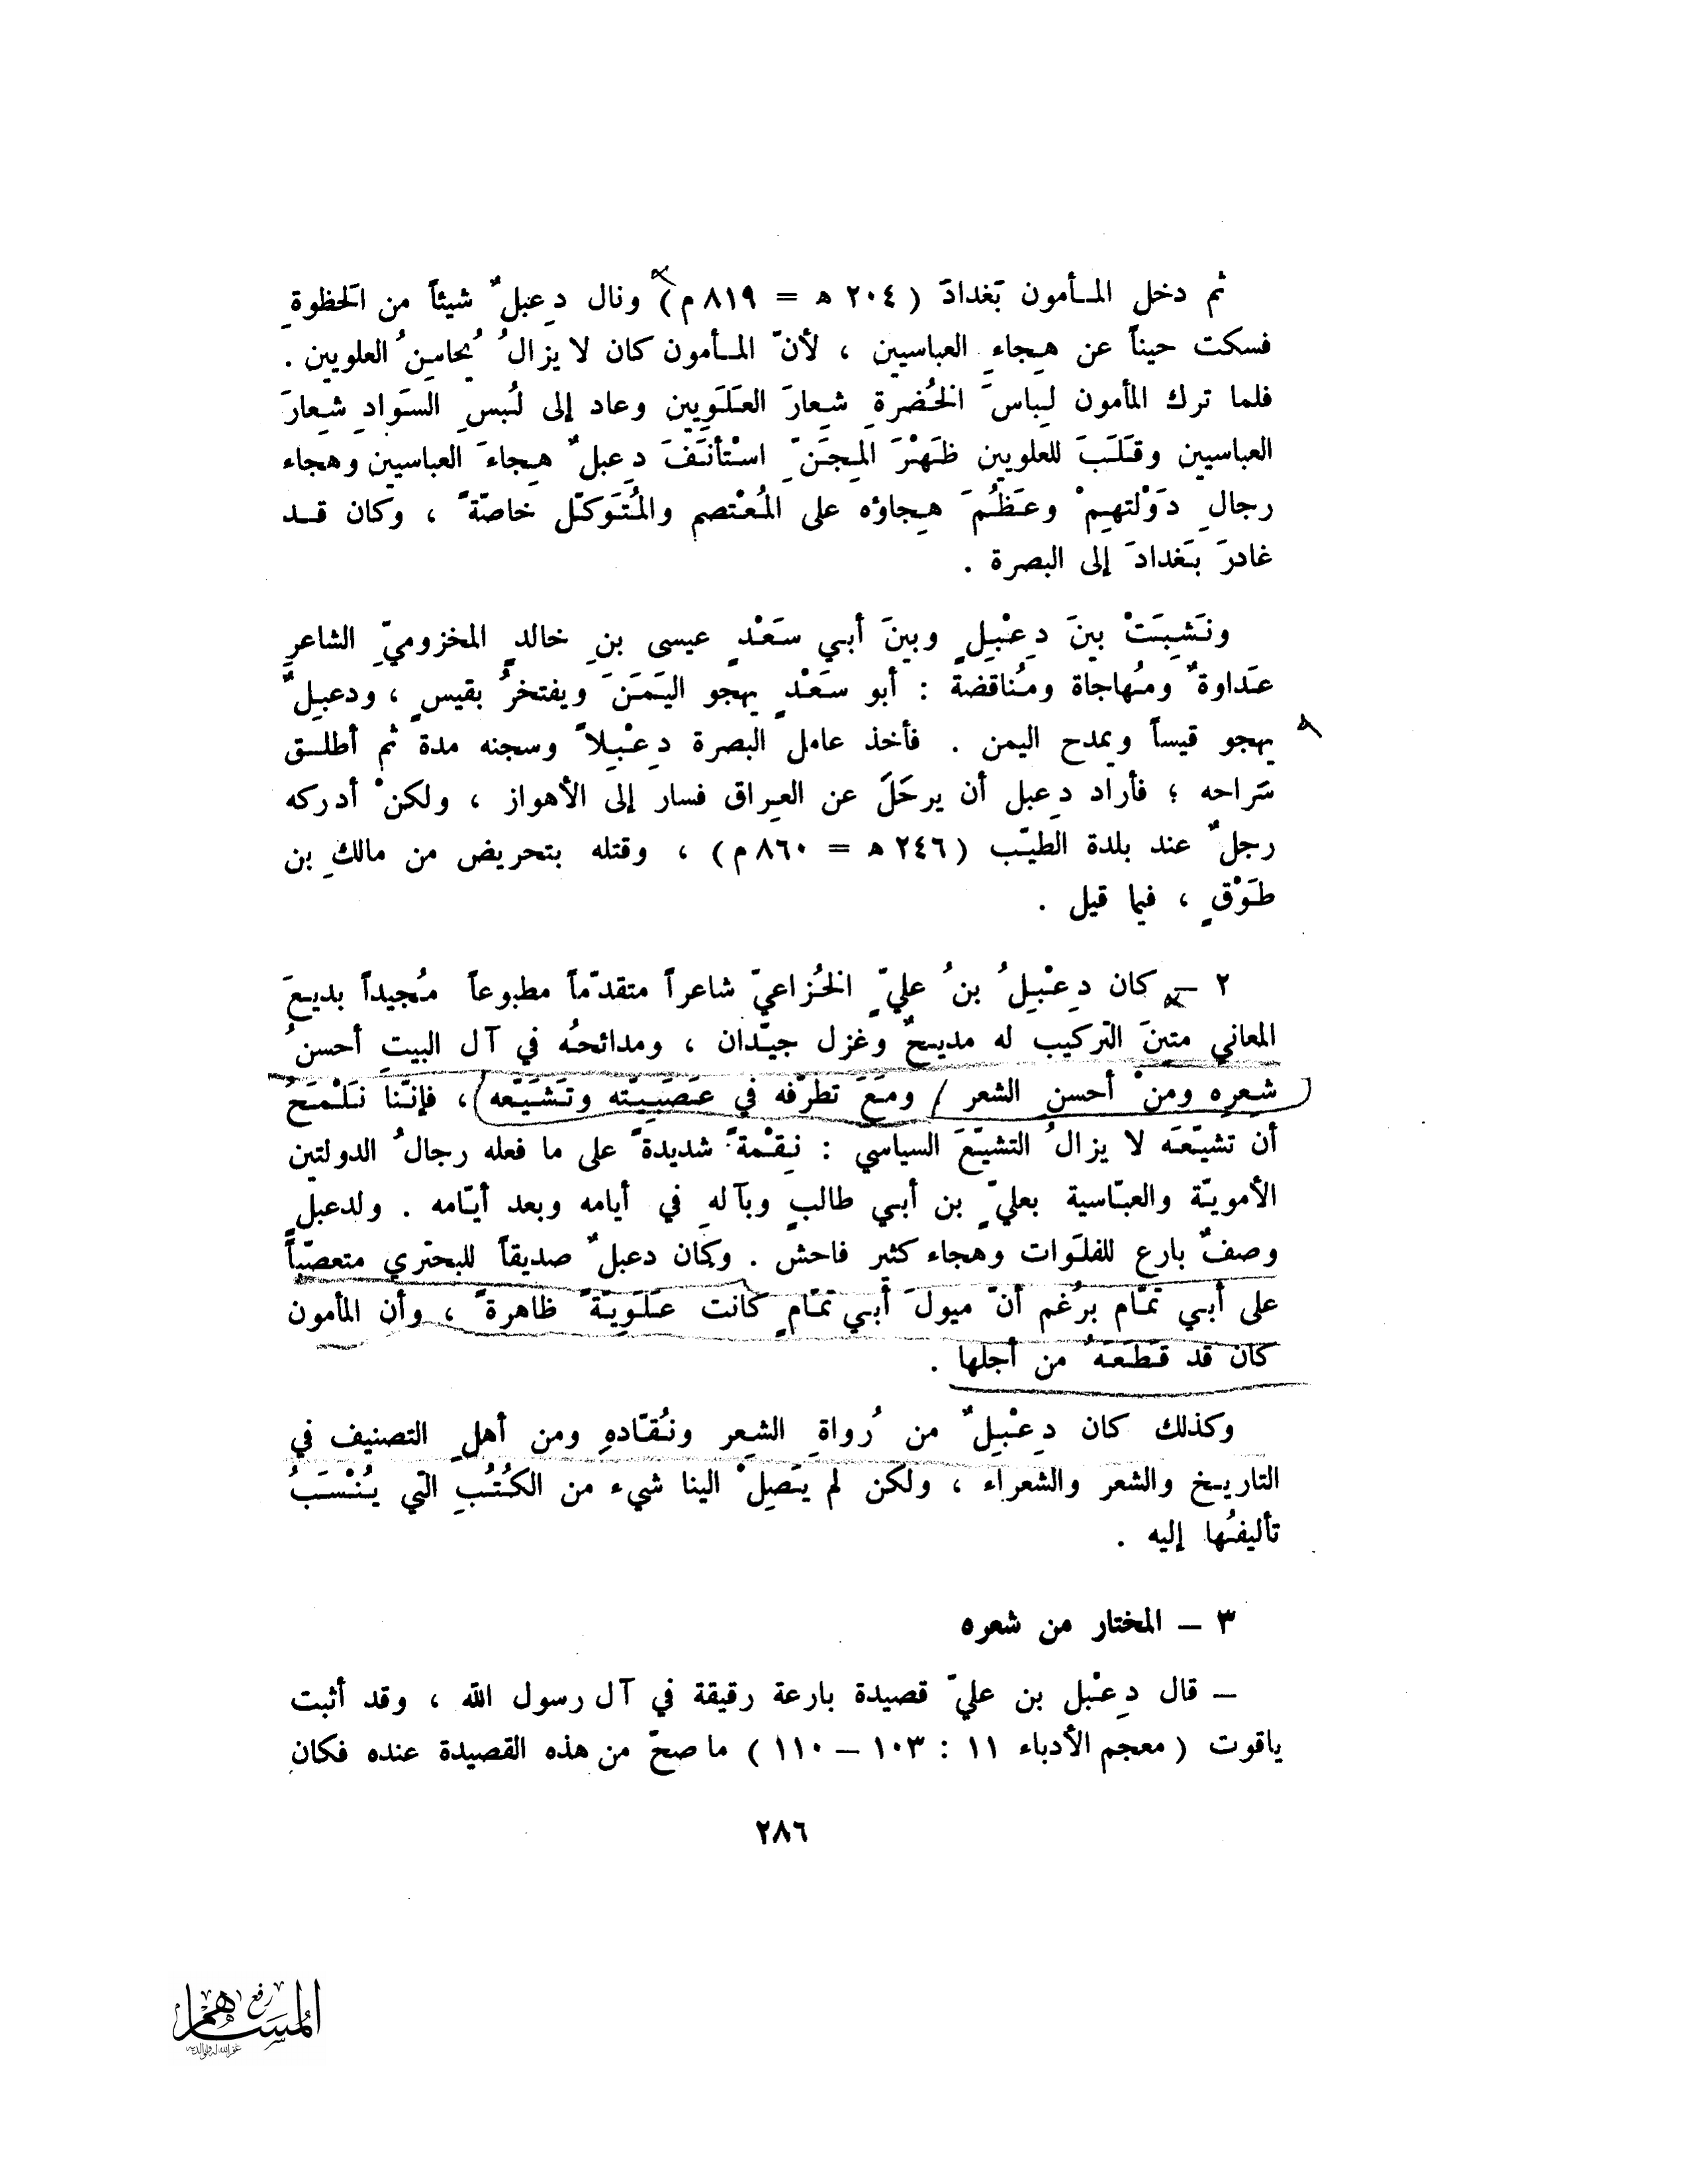 ثم دخل المـأمون بَغدادَ ( ٢٠٤ ه = ٨١٩ م ) ونال دِعبلٌ شيئاً من الحَظوةِ
فسكت حيناً عن هِجاءِ العباسيين ، لأنّ المـأمون كان لا يزالُ يُحاسِنُ العلويين .
فلما ترك المأمون لِباسَ الخُضرةِ شِعارَ العَلَوِيين وعاد إلى لُبسِ السَوادِ شِعارَ
العباسيين وقَلَبَ للعلويين ظَهْرَ المِجَنِّ استْأنَفَ دِعبلٌ هِجاءَ العباسيين وهجاء
رجالِ دَوْلتهِمْ وعَظُمَ هِجاؤه على المُعْتصم والمُتَوكّل خاصّةً ، وكان قـد
غادرَ بَغدادَ إلى البصرة .
ونَشِبَتْ بينَ دِعْبِلٍ وبينَ أبي سَعْدٍ عيسى بنِ خالدٍ المخزوميِّ الشاعرِ
عَداوةٌ ومُهاجاة ومُناقضة : أبو سَعْدٍ يهجو اليَمَنَ ويفتخرُ بقيسٍ ، ودعبِلٌ
يهجو قيساً ويمدح اليمن . فأخذ عامل البصرة دِعْبِلاً وسجنه مدة ثم أطلـق
سَراحه ؛ فأراد دِعبل أن يرحَلَ عن العِراق فسار إلى الأهواز ، ولكنْ أدركه
رجلٌ عند بلدة الطيّب ( ٢٤٦ ه = ٨٦٠ م ) ، وقتله بتحريض من مالكِ بن
طَوْقٍ ، فيما قيل .
٢ – كان دِعْبِلُ بنُ عليٍّ الخُزاعيّ شاعراً متقدّماً مطبوعاً مُجيداً بديعَ
المعاني متينَ التركيب له مديحٌ وغزل جيّدان ، ومدائحُه في آل البيتِ أحسنُ
شِعرِه ومنْ أحسنِ الشعر / ومَعَ تطرّفه في عَصَبِيّته وتَشَيّعه ، فإنّنا نَلْمَحُ
أن تشيّعَه لا يزالُ التشيّعَ السياسي : نِقْمةً شديدةً على ما فعله رجالُ الدولتين
الأمويّة والعبّاسية بعليٍّ بن أبي طالبٍ وبآلهِ في أيامه وبعد أيّامه . ولدعبلٍ
وصفٌ بارع للفلَوات وهجاء كثير فاحش . وكان دعبلٌ صديقاً للبحتري متعصّباً
على أبي تمّام برُغم أنّ ميولَ أبي تمّامٍ كانت عَلَوِيّةً ظاهرةً ، وأن المأمون
كان قد قَطَعَهُ من أجلها .
وكذلك كان دِعْبِلٌ من رُواةِ الشِعر ونُقّادهِ ومن أهلِ التصنيف في
التاريـخ والشعر والشعراء ، ولكن لم يَصِلْ الينا شيء من الكُتُبِ التي يُنْسَبُ
تأليفُها إليه .
٣ – المختار من شعره
– قال دِعْبل بن عليّ قصيدة بارعة رقيقة في آل رسول الله ، وقد أثبت
ياقوت ( معجم الأدباء ١١ : ١٠٣ – ١١٠ ) ما صحّ من هذه القصيدة عنده فكان
٢٨٦
رفع
المساهم
غفر الله له ولوالديه